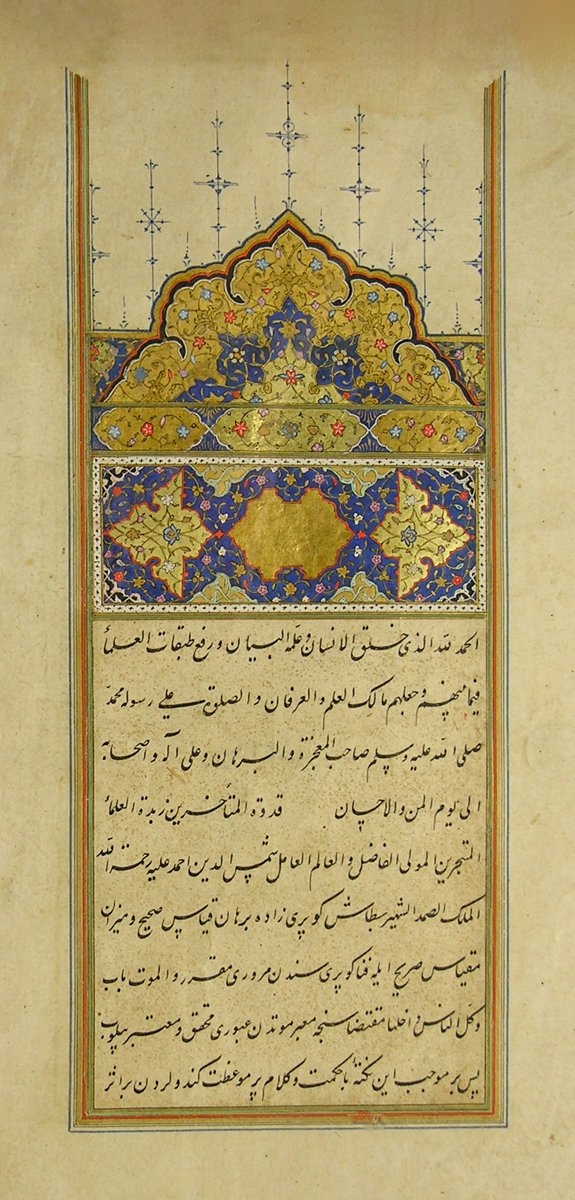 الحمد لله الذى خلق الانسان وعلمه البيان ورفع طبقات العلمأ
فيما بينهم وجعلهم مالك العلم والعرفان والصلوة على رسوله محمد
صلى الله عليه وسلم صاحب المعجزة والبرهان وعلى آله واصحابه
الى يوم المن والاحسان قدوة المتأخرين زبدة العلمأ
المتبحرين المولى الفاضل والعالم العامل شمس الدين احمد عليه رحمة الله
الملك الصمد الشهير بطاش كوپرى زاده برهان قياس صحيح وميزان
مقياس صريح ايله فنا كوپرى سندن مرورى مقرر والموت باب
وكل الناس داخلها مقتضاسنجه معبر موتدن عبورى محقق ومعتبر
پس بر موجب اين نكته با حكمت وكلام پر موعظت كندولردن بر اثر